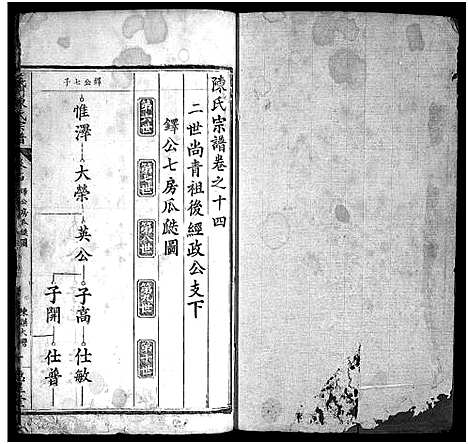 陳氏宗譜卷之十四
二世尚青祖後經政公支下
鐸公七房瓜瓞圖
第六世
第七世
第八世
第九世
第十世
鐸公七子
惟澤 大榮 英公 子高 仕敏
子開 仕普